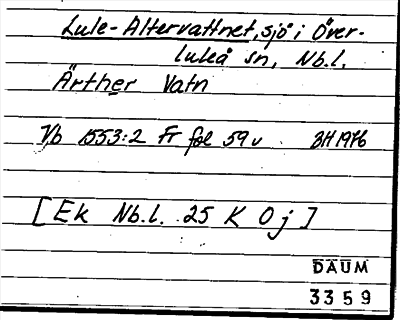 Lule-Altervattnet, sjö i Över-
luleå sn, Nb.l.
Ärther Vatn
Vb 1553:2 Fr fol 59v BH 1976
[Ek Nb.l. 25 K 0 j]
DAUM
3359